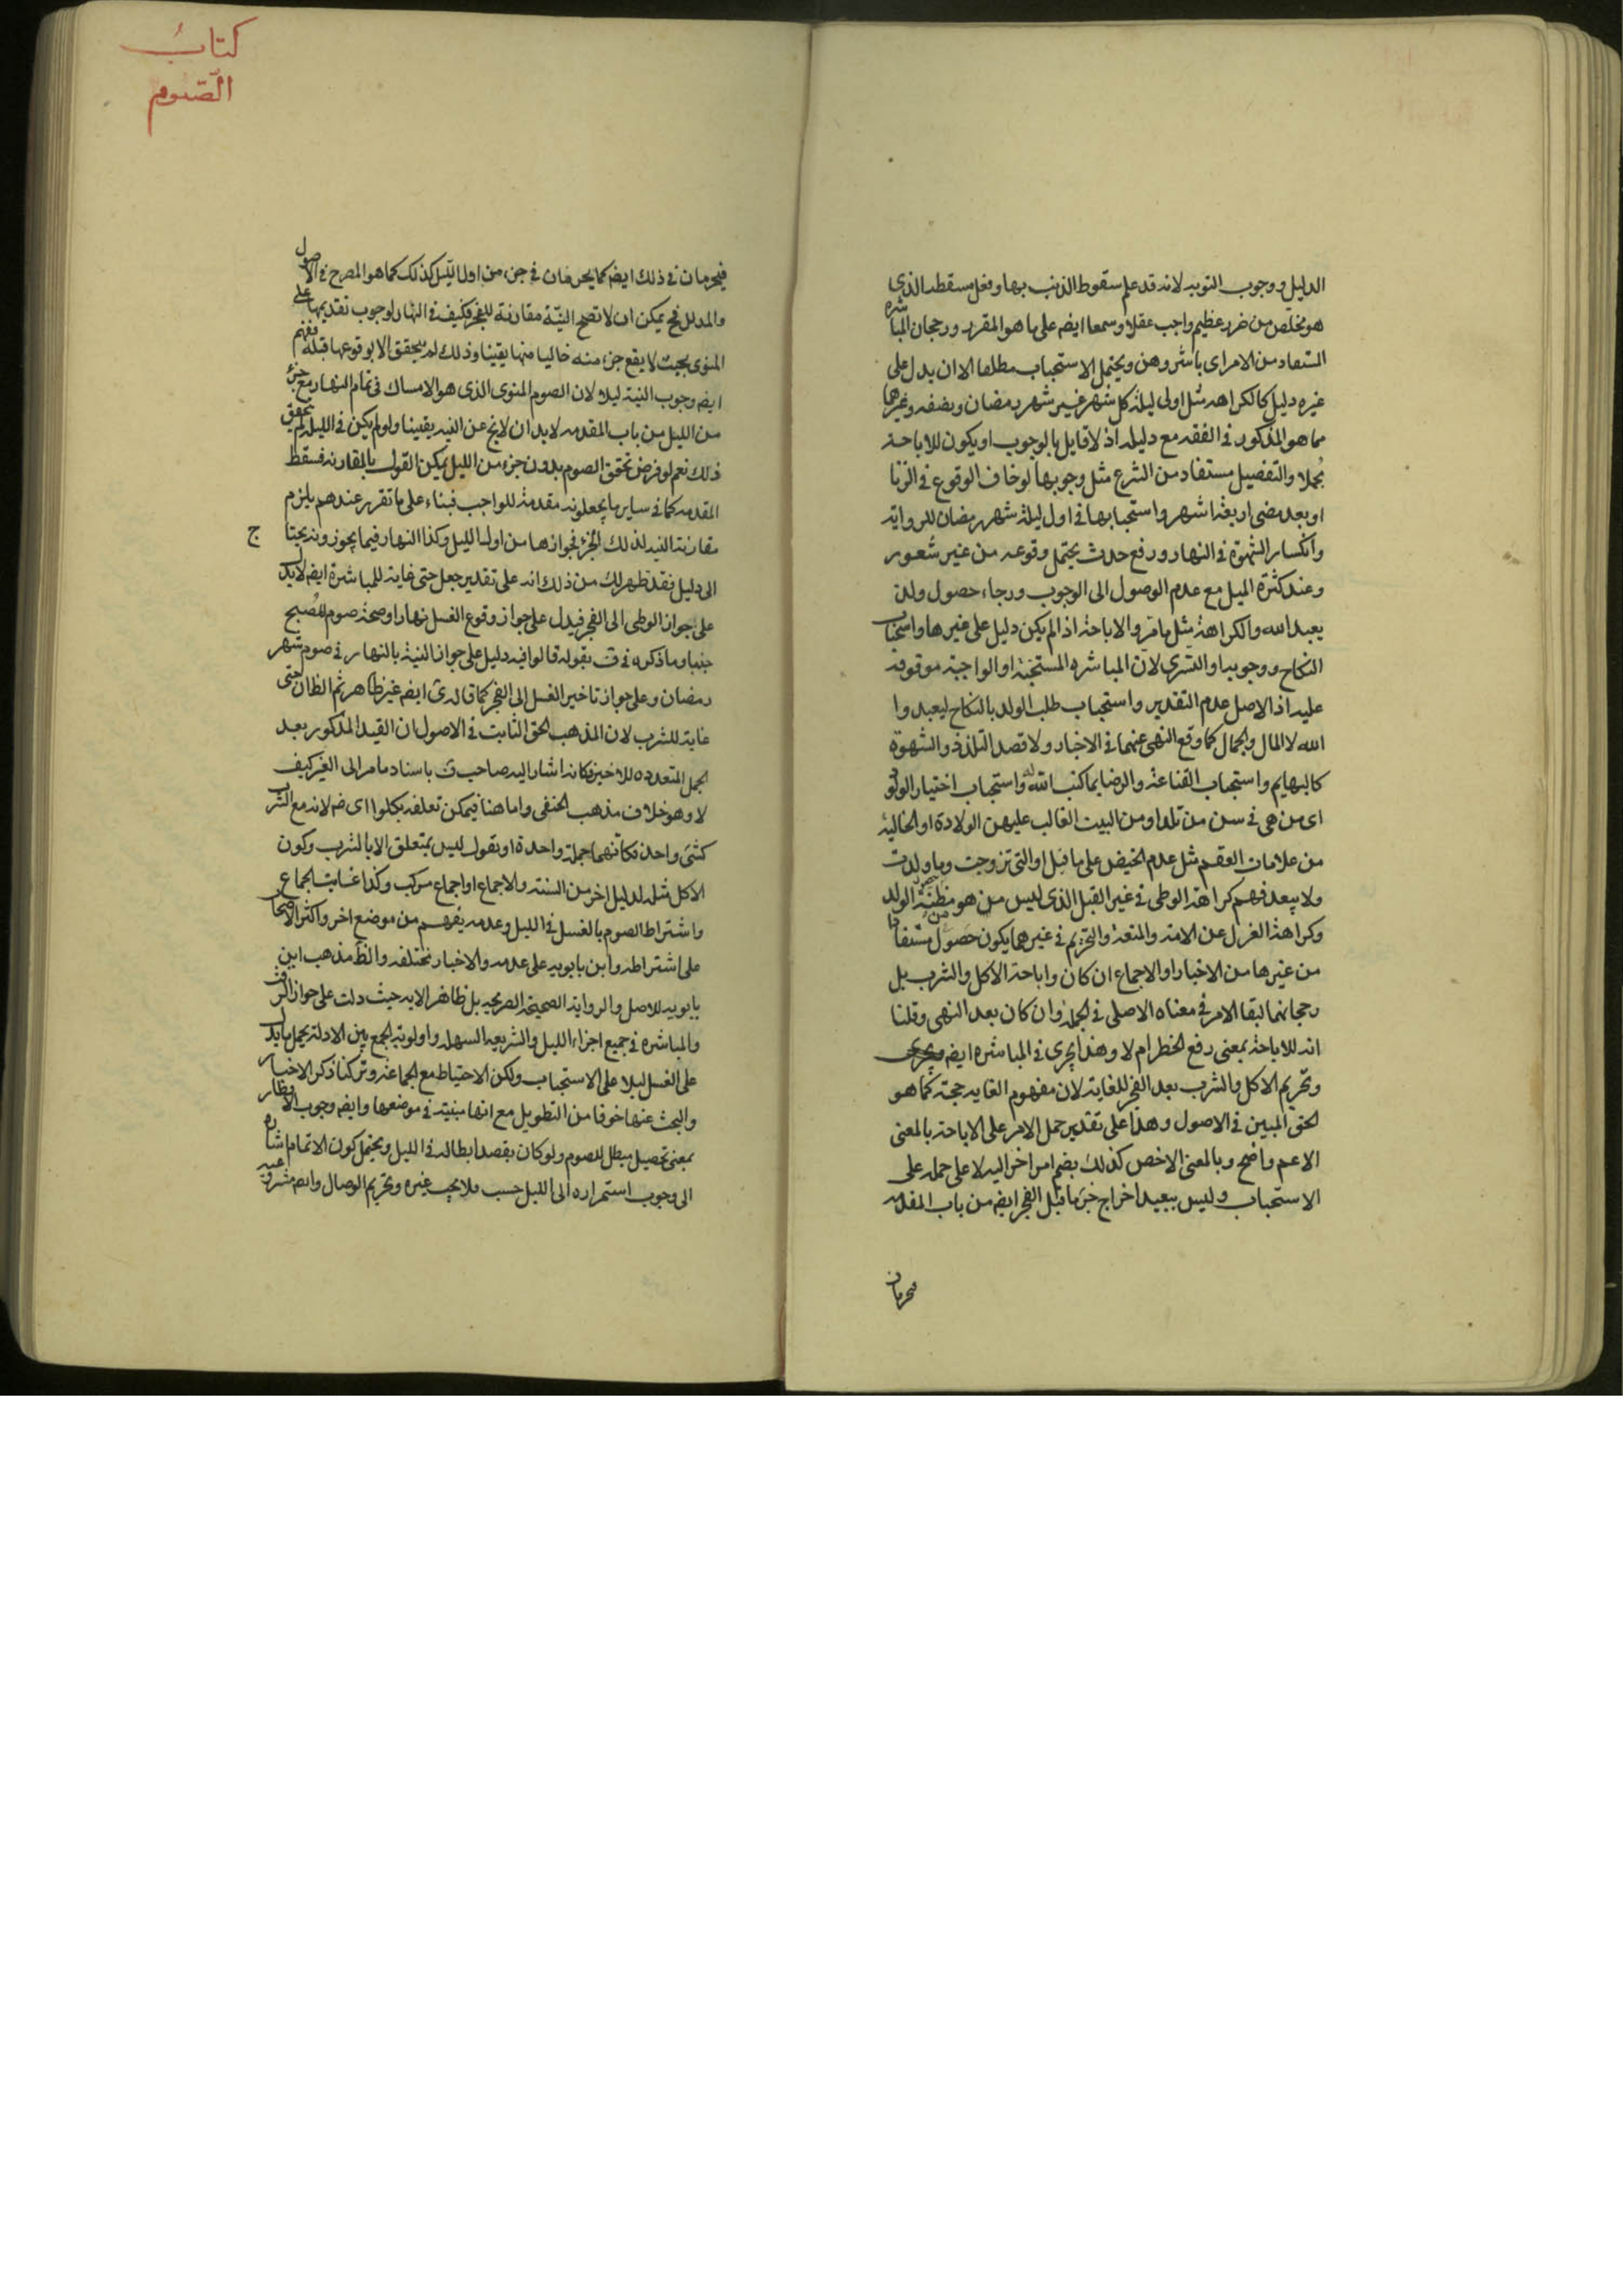 الدليل ووجوب التوبه لانه قد علم سقوط الذنب بها وفعل مسقطه الذى
هو مخلص من ضرر عظيم واجب عقلا وسمعا ايضه على ما هو المقرر ورجحان المباشره
المستفاد من الامر اى باشروهن ويحتمل الاستحباب مطلقا الا ان يدل على
غيره دليل كالكراهه مثل اولى ليلة كل شهر غير شهر رمضان ونصفه وغيرها
مما هو المذكور فى الفقه مع دليله اذ لا قايل بالوجوب او يكون للاباحة
مجملا والتفصيل مستفاد من الشرع مثل وجوبها لو خاف الوقوع فى الزنا
او بعد مضى اربعة اشهر واستحبابها فى اول ليلة شهر رمضان للرواية
وانكسار الشهوة فى النهار ورفع حدث يحتمل وقوعه من غير شعور
وعند كثرة الميل مع عدم الوصول الى الوجوب ورجاء حصول ولد
يعبد الله والكراهة مثل ما مر والاباحة اذا لم يكن دليل على غيرها واستحباب
النكاح ووجوبه او التسرى لان المباشره المستحبة او الواجبة موقوفة
عليه اذ الاصل عدم التقدير واستحباب طلب الولد بالنكاح ليعبدوا
الله لا المال والجمال كما وقع النهى عنهما فى الاخبار ولا قصد التلذذ والشهوة
كالبهايم واستحباب القناعة والرضا بما كتب الله له واستحباب اختيار الولود
اى من هى فى سن من تلد او من البيت الغالب عليهن الولادة او الخالية
من علامات العقم مثل عدم الحيض على ما قيل او التى تزوجت وما ولدت
ولا يبعد فهم كراهة الوطى فى غير القبل الذى ليس من هو مظنة حصول الولد
وكراهة العزل عن الامة والمتعة والتحريم فى غيرهما يكون حصول مستفادا
من غيرها من الاخبار او الاجماع ان كان واباحة الاكل والشرب بل
رجحانهما لبقا الامر فى معناه الاصلى فى الجملة وان كان بعد النهى وقلنا
انه للاباحة بمعنى رفع الحظر ام لا وهذا يجرى فى المباشره ايضه
وتحريم الاكل والشرب بعد الفجر للغاية لان مفهوم الغايه حجة كما هو
الحق المبين فى الاصول وهذا على تقدير حمل الامر على الاباحة بالمعنى
الاعم واضح وبالمعنى الاخص كذلك بضم امر اخر اليه لا على حمله على
الاستحباب وليس ببعيد اخراج جزء ما قبل الفجر ايضه من باب المقدمه
فيحرمان
كتاب
الصوم
فيحرمان فى ذلك ايضه كما يحرمان فى جزء من اول الليل كذلك كما هو المصرح فى الاصول
والمدلل فح يمكن ان لا تصح النية مقارنة للفجر فكيف فى النهار لوجوب تقديمها على
المنوى بحيث لا يقع جزء منه خاليا منها يقينا وذلك لم يتحقق الا بوقوعها قبله فيفهم
ايضه وجوب النية ليلا لان الصوم المنوى الذى هو الامساك فى تمام النهار مع جزء
من الليل من باب المقدمه لا بد ان لا يخ عن النيه يقينا ولو لم يكن فى الليل لم يتحقق
ذلك نعم لو فرض تحقق الصوم بدون جزء من الليل يمكن القول بالمقارنه فسقط
المقدمه كما فى ساير ما يجعلونه مقدمة للواجب فبناء على ما تقرر عندهم يلزم
مقارنة النيه لذلك الجزء فجوازها من اول الليل وكذا النهار فيما يجوزونه يحتاج
الى دليل فقد ظهر لك من ذلك انه على تقدير جعل حتى غاية للمباشرة ايضه لا يدل
على جواز الوطى الى الفجر فيدل على جواز وقوع الغسل نهارا وصحة صوم المصبح
جنبا وما ذكره فى ف بقوله قالوا فيه دليل على جواز النية بالنهار فى صوم شهر
رمضان وعلى جواز تاخير الغسل الى الفجر كما قاله ى ايضه غير ظاهر ثم الظان حتى
غاية للشرب لان المذهب الحق الثابت فى الاصول ان القيد المذكور بعد
الجمل المتعدده للاخير فكانه اشار اليه صاحب ف باسناد ما مر الى الغير كيف
لا وهو خلاف مذهب الحنفى واما هنا فيمكن تعلقه بكلوا اى ضه لانه مع الشرب
كشئ واحد فكانهما جملة واحدة او نقول ليس بمتعلق الا بالشرب وكون
الاكل مثله لدليل اخر من السنة والاجماع او اجماع مركب وكذا غايت الجماع
واشتراط الصوم بالغسل فى الليل وعدمه يفهم من موضع اخر واكثر الاصحاب
على اشتراطه وابن بابويه على عدمه والاخبار مختلفه والظ مذهب ابن
بابويه للاصل والرواية الصحيحة الصريحه بل ظاهر الايه حيث دلت على جواز الرفث
والمباشره فى جميع اجزاء الليل والشريعه السهله واولوية الجمع بين الادلة بحمل ما يدل
على الغسل ليلا على الاستحباب ولكن الاحتياط مع الجماعة وتركنا ذكر الاخبار
والبحث عنها خوفا من التطويل مع انها مبنية فى موضعها وايضه وجوب الافطار
بمعنى تحصيل مبطل للصوم ولو كان بقصد ابطاله فى الليل ويحتمل كون الاتمام اشاره
الى وجوب استمراره الى الليل حسب فلا يجب غيره وتحريم الوصال وانه مشروعيه